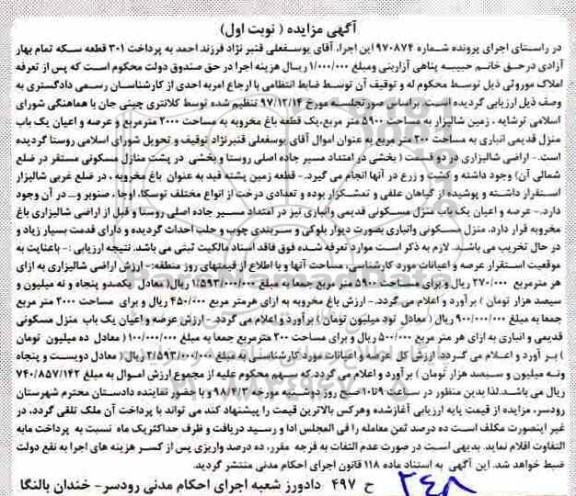 آگهی مزایده ( نوبت اول)
در راستای اجرای پرونده شماره ۹۷۰۸۷۴ این اجرا، آقای یوسفعلی قنبر نژاد فرزند احمد به پرداخت ۳۰۱ قطعه سکه تمام بهار
آزادی درحق خانم حبیبه پناهی آزاربنی ومبلغ ۱/۰۰۰/۰۰۰ ریال هزینه اجرا در حق صندوق دولت محکوم است که پس از تعرفه
املاک موروثی ذیل توسط محکوم له و توقیف آن توسط ضابط انتظامی با ارجاع امربه احدی از کارشناسان رسمی دادگستری به
وصف ذیل ارزیابی گردیده است. براساس صورتجلسه مورخ ۹۷/۱۲/۱۴ تنظیم شده توسط کلانتری چینی جان با هماهنگی شورای
اسلامی ترشایه ، زمین شالیزار به مساحت ۵۹۰۰ متر مربع،یک قطعه باغ مخروبه به مساحت ۲۰۰۰ مترمربع و عرصه و اعیان یک باب
منزل قدیمی انباری به مساحت ۲۰۰ متر مربع به عنوان اموال آقای یوسفعلی قنبرنژاد توقیف و تحویل شورای اسلامی روستا گردیده
است. - اراضی شالیزاری در دو قسمت ( بخشی در امتداد مسیر جاده اصلی روستا و بخشی در پشت منازل مسکونی مستقر در ضلع
شمالی آن) وجود داشته و کشت و زرع در آنها انجام می گیرد. - قطعه زمین پشته قید به عنوان باغ مخروبه ، در ضلع غربی شالیزار
استقرار داشته و پوشیده از گیاهان علفی و تمشکزار بوده و تعدادی درخت از انواع مختلف توسکا، اوجا ، صنوبر و... در آن وجود
دارد. - عرصه و اعیان یک باب منزل مسکونی قدیمی وانباری نیز در امتداد مسیر جاده اصلی روستا و قبل از اراضی شالیزاری باغ
مخروبه قرار دارد. منزل مسکونی وانباری بصورت دیوار بلوکی و سربندی چوب و حلب احداث گردیده و دارای قدمت بسیار زیاد و
در حال تخریب می باشد. لازم به ذکر است موارد تعرفه شده فوق فاقد اسناد مالکیت ثبتی می باشد. نتیجه ارزیابی :- باعنایت به
موقعیت استقرار عرصه و اعیانات مورد کارشناسی، مساحت آنها و با اطلاع از قیمتهای روز منطقه:- ارزش اراضی شالیزاری به ازای
هر مترمربع ۲۷۰/۰۰۰ ریال و برای مساحت ۵۹۰۰ متر مربع جمعا به مبلغ ۱/۵۹۳/۰۰۰/۰۰۰ ریال( معادل یکصدو پنجاه و نه میلیون و
سیصد هزار تومان ) برآورد و اعلام می گردد. - ارزش باغ مخروبه به ازای هرمتر مربع ۴۵۰/۰۰۰ ریال و برای مساحت ۲۰۰۰ متر مربع
جمعا به مبلغ ۹۰۰/۰۰۰/۰۰۰ ریال ( معادل نود میلیون تومان) برآورد و اعلام می گردد. - ارزش عرصه و اعیان یک باب منزل مسکونی
قدیمی و انباری به ازای هر متر مربع ۵۰۰/۰۰۰ ریال و برای مساحت ۲۰۰ مترمربع جمعا به مبلغ ۱۰۰/۰۰۰/۰۰۰( معادل ده میلیون تومان
) بر آورد و اعلام می گردد. ارزش کل عرصه و اعیانات مورد کارشناسی به مبلغ ۲/۵۹۳/۰۰۰/۰۰۰ ریال( معادل دویست و پنجاه
ونه میلیون و سیصد هزار تومان ) برآورد و اعلام می گردد که سهم محکوم علیه از مجموع ارزش اموال به مبلغ ۷۴۰/۸۵۷/۱۴۲
ریال می باشد.لذا بدین منظور در ساعت ۹ تا۱۰ صبح روز دوشنبه مورخه ۹۸/۷/ و با حضور نماینده دادستان محترم شهرستان
رودسر، مزایده از قیمت پایه ارزیابی آغازشده وهرکس بالاترین قیمت را پیشنهاد کند می تواند با پرداخت آن ملک تلقی گردد. در
غیر اینصورت مکلف است ده درصد ثمن معامله را فی المجلس ادا و رسید دریافت و ظرف حداکثریک ماه نسبت به پرداخت مابه
التفاوت اقلام نماید. بدیهی است در صورت عدم التفات به فرجه مقرر، ده درصد واریزی پس از کسر هزینه های اجرا به نفع دولت
ضبط خواهد شد. این آگهی به استناد ماده ۱۱۸ قانون اجرای احکام مدنی منتشر گردید.
۲۴۸ ح ۴۹۷ دادورز شعبه اجرای احکام مدنی رودسر- خندان بالنگا